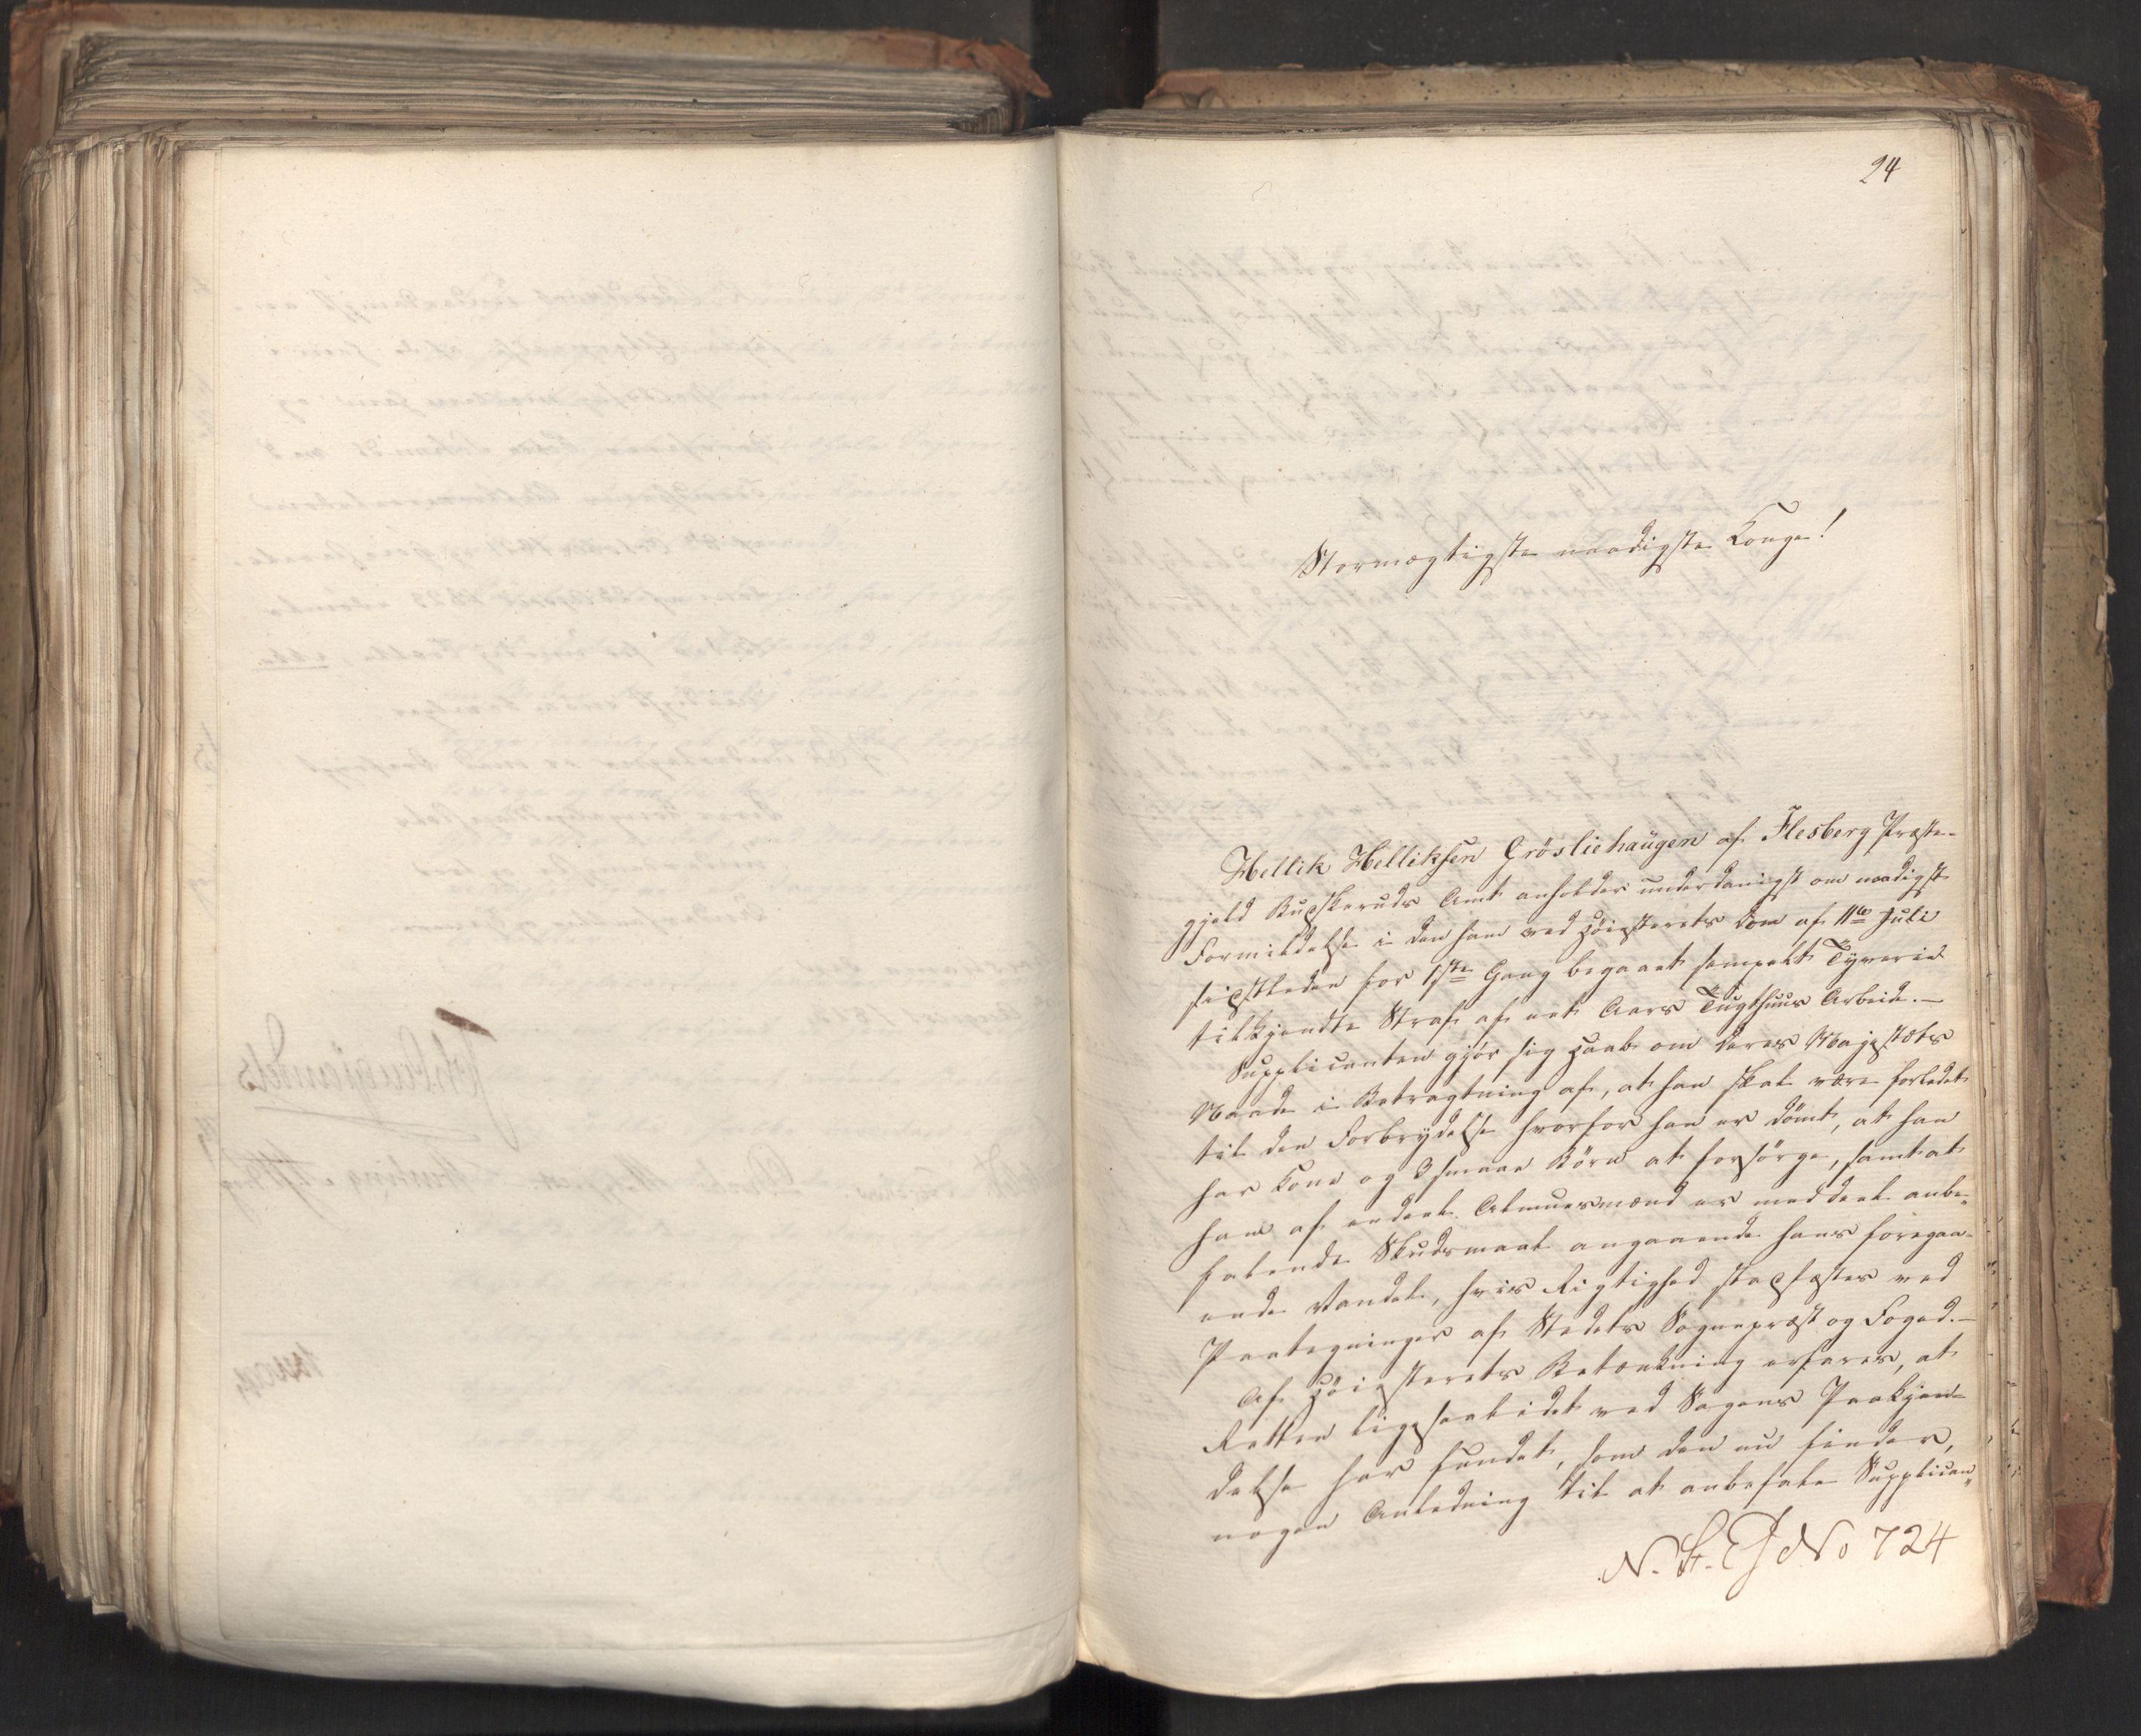 24
Stormægtigste naadigste Konge!
Hellik Helliksen Grösliehaugen af Flesberg Præste-
gjeld Buskeruds Amt anholder underdanigst om naadigst
Formildelse i den ham ved Höiesterets Dom af 11te Juli
sidstleden for 1ste Gang begaaet simpelt Tyverie
tilkjendte Straf af eet Aars Tugthuus Arbeide.-
Supplicanten gjör sig Haab om Deres Majestæts
Naade i Betragtning af, at han skal være forledet
til den Forbrydelse hvorfor han er dömt, at han
har Kone og 3 smaae Börn at forsörge, samt at
ham af endeel Almuesmænd er meddeelt anbe-
falende Skudsmaal angaaende hans foregaa-
ende Vandel, hvis Rigtighed stadfæstes ved
Paategninger af Stedets Sognepræst og Foged.-
Af Höiesterets Betænkning erfares, at
Retten ligesaalidet ved Sagens Paakjen-
delse har fundet, som den nu finder,
nogen Anledning til at anbefale Supplican-
N. S. E. J No 724